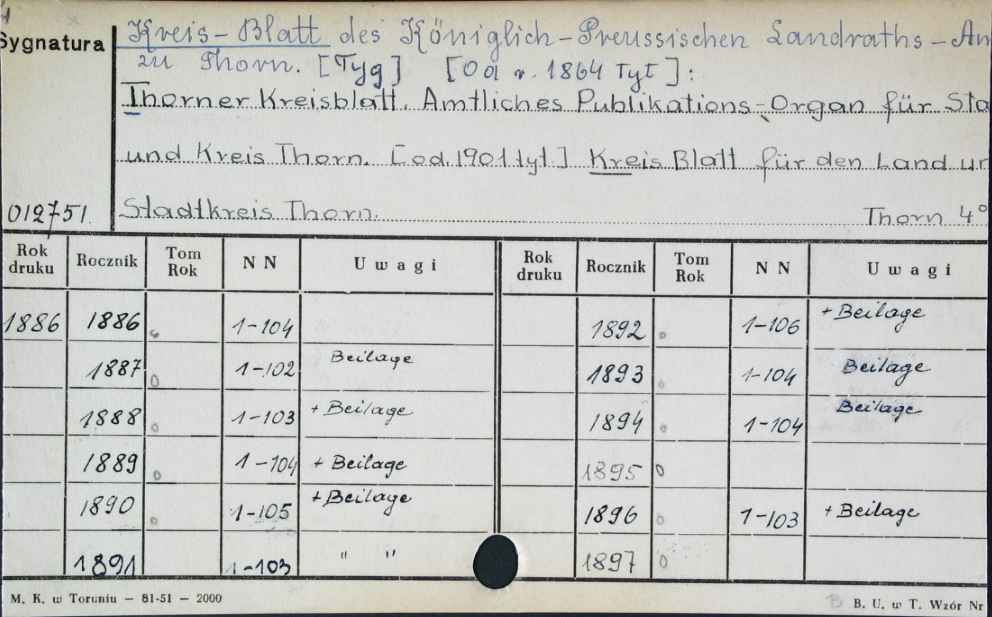 Sygnatura
Kreis-Blatt des Königlich-Preussischen Landraths-Am
zu Thorn. [Tyg] [Od r. 1864 Tyt]:
Thorner Kreisblatt. Amtliches Publikations-Organ für Sta
und Kreis Thorn. [od. 1901 tyt.] Kreis Blatt für den Land un
012751 Stadtkreis Thorn. Thorn 4°
Rok druku Rocznik Tom Rok NN Uwagi Rok druku Rocznik Tom Rok NN Uwagi
1886 1886 1-104 1892 1-106 + Beilage
1887 1-102 Beilage 1893 1-104 Beilage
1888 1-103 + Beilage 1894 1-104 Beilage
1889 1-104 + Beilage 1895
1890 1-105 + Beilage 1896 1-103 + Beilage
1891 1-103 " " 1897
M. K. w Toruniu — 81-51 — 2000 B. U. w T. Wzór Nr